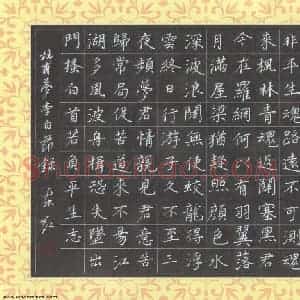 非平生魂路遠不可測魂
來楓林青魂返關塞黑君
今在羅網何以有羽翼落
月滿屋梁猶疑照顔色水
深波浪闊無使蛟龍得浮
雲終日行游子久不至三
夜頻夢君情親見君意告
歸常局促苦道來不易江
湖多風波舟楫恐失墜出
門搔白首若負平生志
杜甫夢李白節錄